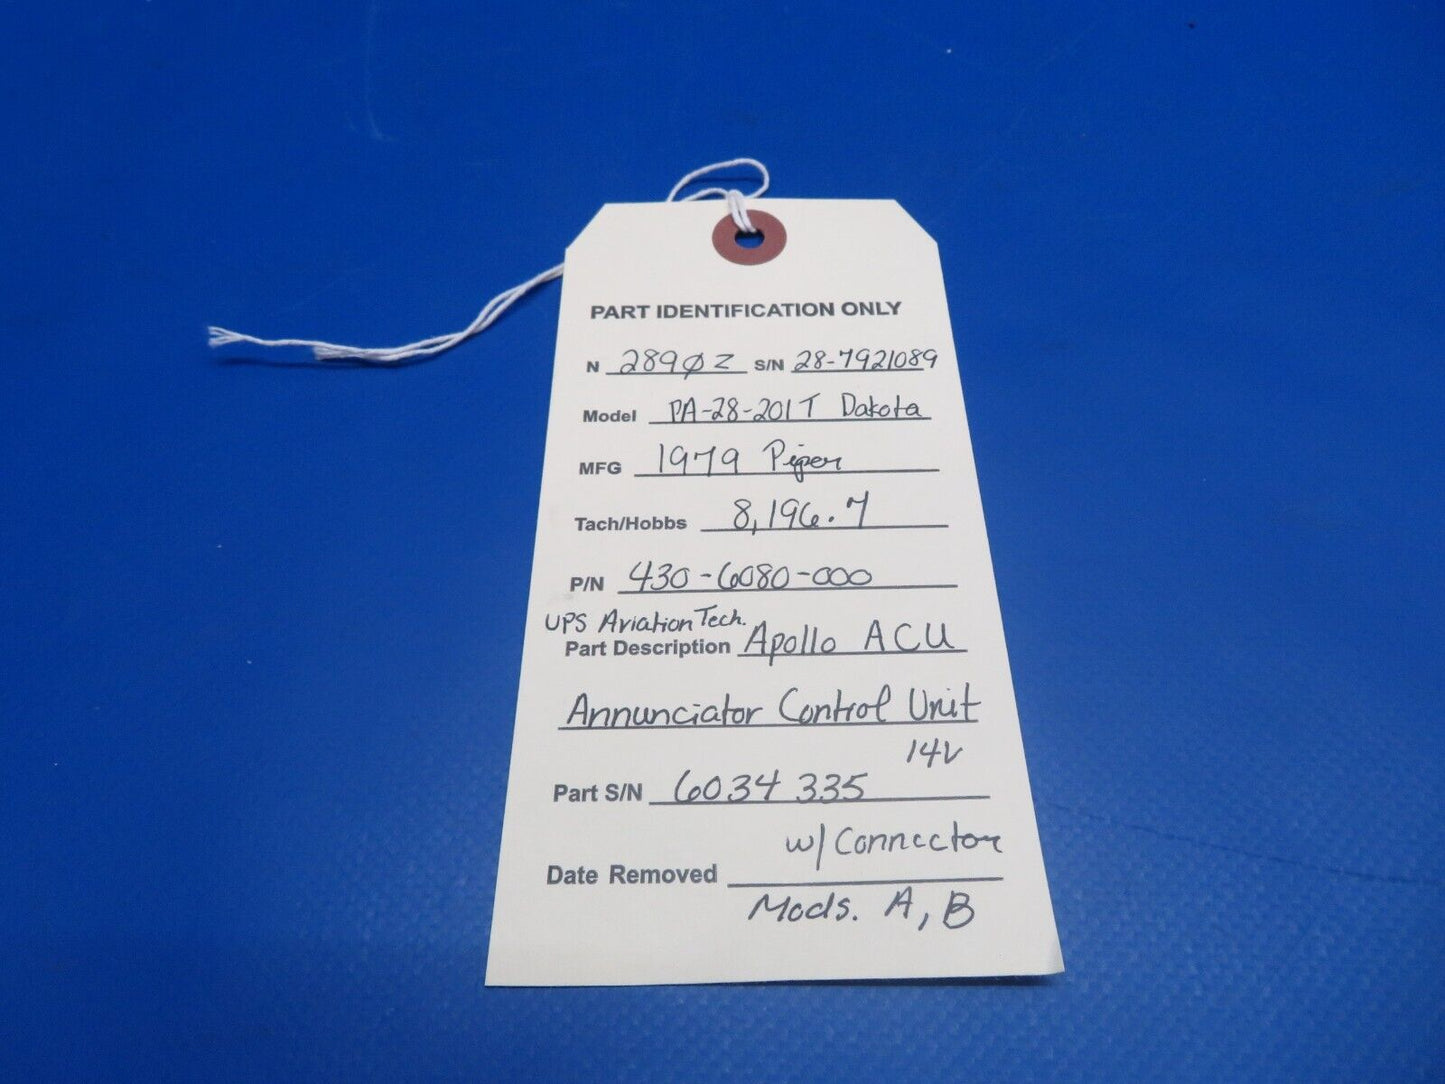 PART IDENTIFICATION ONLY
N 2890Z S/N 28-7921089
Model PA-28-201T Dakota
MFG 1979 Piper
Tach/Hobbs 8,196.7
P/N 430-6080-000
UPS Aviation Tech.
Part Description Apollo ACU
Annunciator Control Unit
14V
Part S/N 6034335
w/ Connector
Date Removed
Mods. A, B